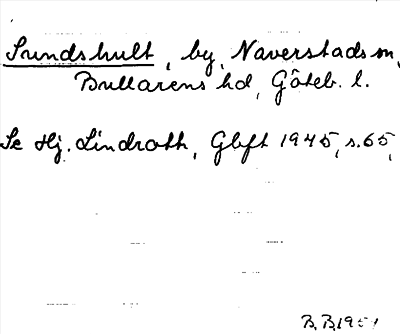 Sundshult, by, Naverstads sn,
Bullarens hd, Göteb. l.
Se Hj. Lindroth, Gbft 1945, s. 65,
B. B. 1951